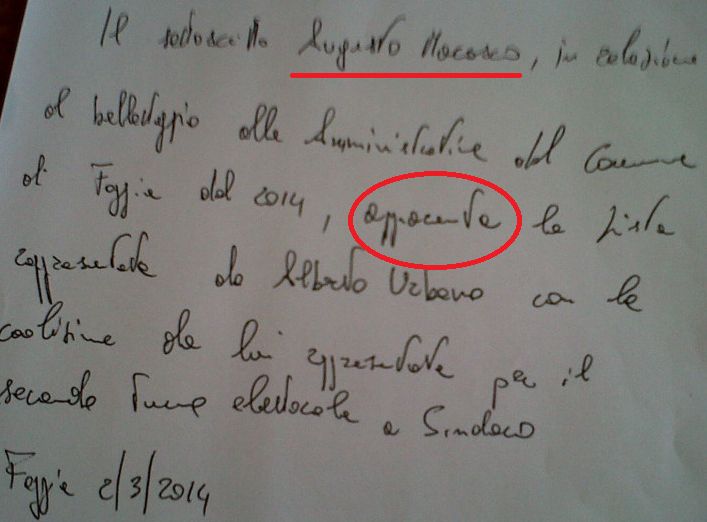 Il sottoscritto Augusto Marasco, in relazione
al ballottaggio alle Amministrative del Comune
di Foggia del 2014, la lista
rappresentata da Alberto Urbano con la
coalizione da lui rappresentata per il
secondo turno elettorale a Sindaco
Foggia 2/3/2014